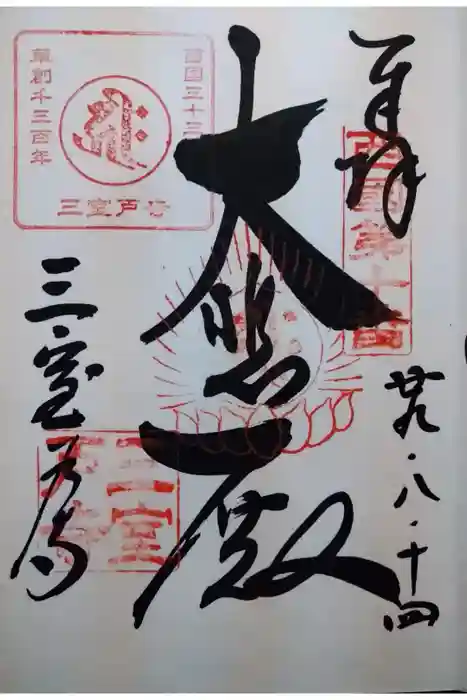 奉拝
西國第十番
廿九・八・十四
大悲殿
西国三十三
草創千三百年
三室戸寺
三室戸寺
三室戸寺